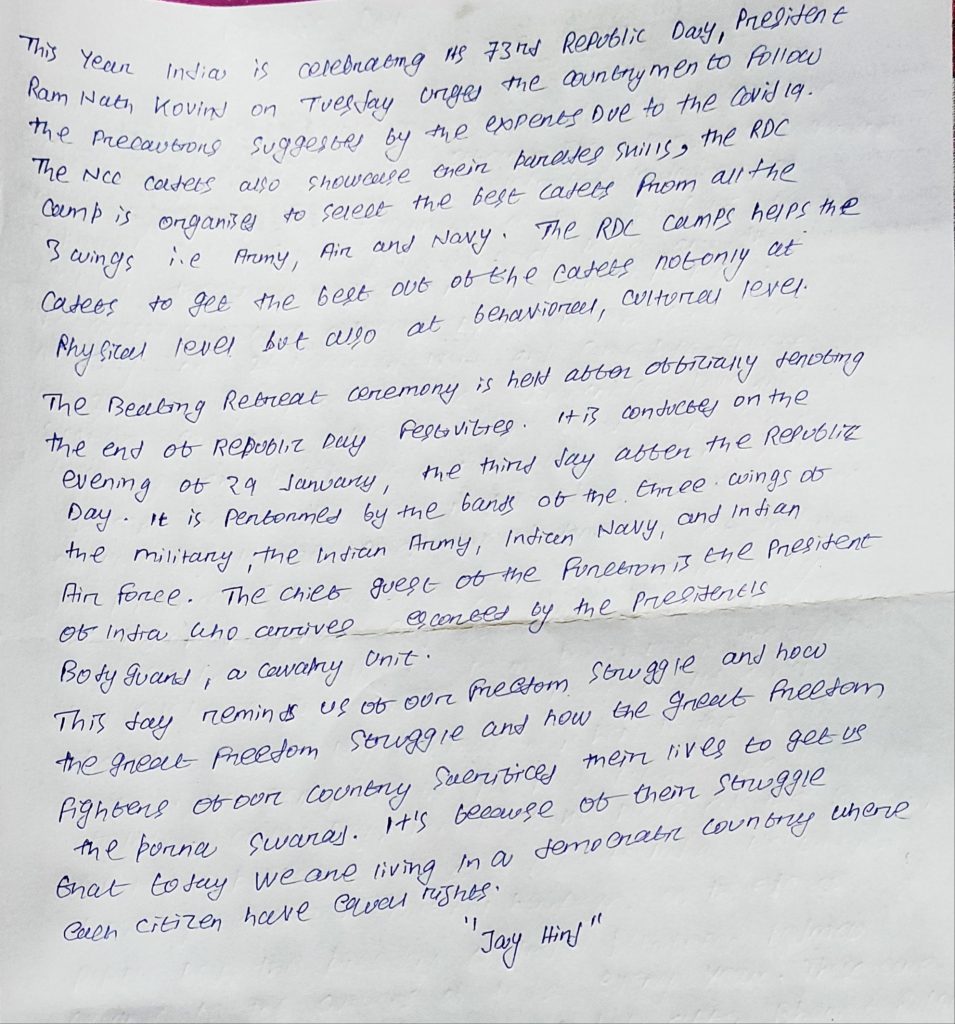 This Year India is celebrating its 73rd Republic Day, President
Ram Nath Kovind on Tuesday urges the countrymen to follow
the precautions suggested by the experts Due to the Covid 19.
The NCC cadets also showcase their parades skills, the RDC
Camp is organised to select the best cadets from all the
3 wings i.e Army, Air and Navy. The RDC camps helps the
Cadets to get the best out of the cadets not only at
Physical level but also at behavioral, cultural level.
The Beating Retreat ceremony is held after officially denoting
the end of Republic Day festivities. It is conducted on the
evening of 29 January, the third day after the Republic
Day. It is performed by the bands of the three wings of
the military, the Indian Army, Indian Navy, and Indian
Air force. The chief guest of the function is the President
of India who arrives escorted by the President's
Body guard, a cavalry Unit.
This day reminds us of our freedom struggle and how
the great freedom struggle and how the great freedom
fighters of our country sacrificed their lives to get us
the purna swaraj. It's because of their struggle
that today we are living in a democratic country where
each citizen have equal rights.
"Jay Hind"